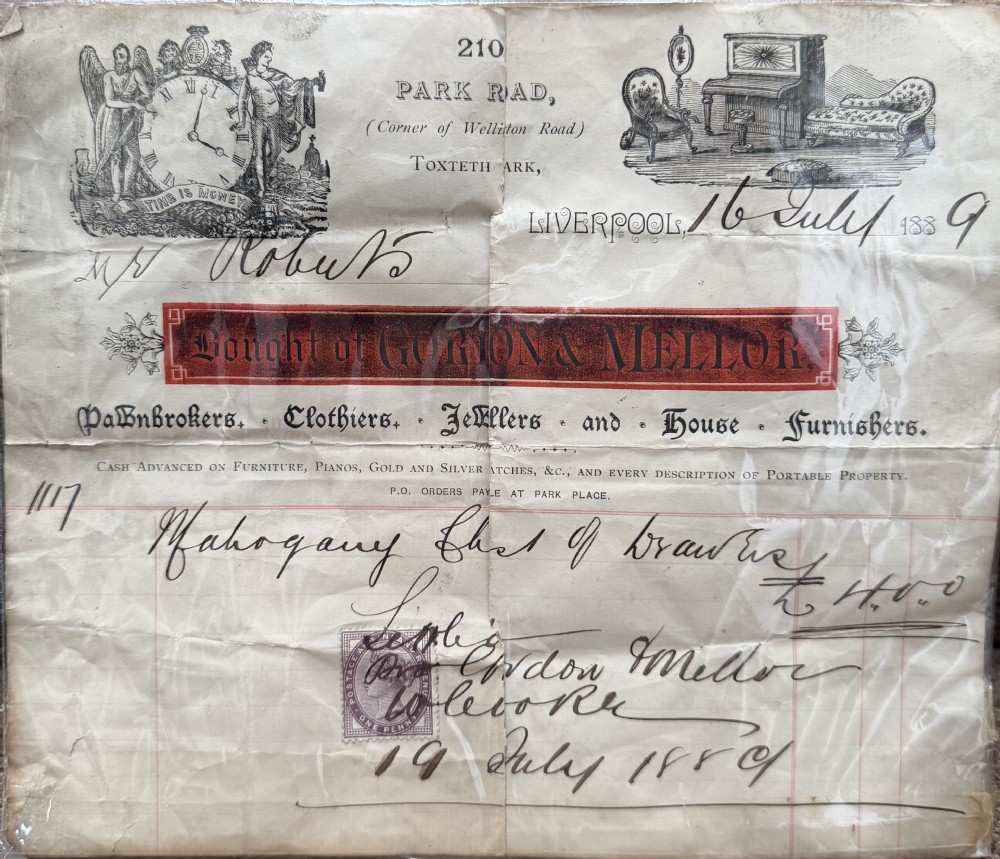 210
PARK R AD,
(Corner of Wellington Road)
TOXTETH ARK,
TIME IS MONEY
LIVERPOOL, 16 July 1889
Mr Roberts
Bought of GORDON & MELLOR.
Pawnbrokers. · Clothiers. · Jewellers · and · House · Furnishers.
CASH ADVANCED ON FURNITURE, PIANOS, GOLD AND SILVER ATCHES, &C., AND EVERY DESCRIPTION OF PORTABLE PROPERTY.
P.O. ORDERS PAY LE AT PARK PLACE.
1117
Mahogany Chest of Drawers
£ 4.0.0
POSTAGE AND INLAND REVENUE
ONE PENNY
Pro Gordon & Mellor
19 July 1889